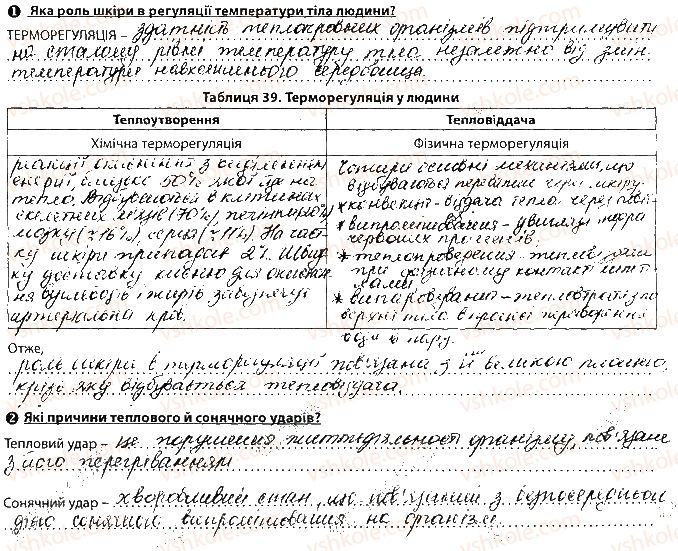 ❶ Яка роль шкіри в регуляції температури тіла людини?
ТЕРМОРЕГУЛЯЦІЯ – здатність теплокровних організмів підтримувати
на сталому рівні температуру тіла незалежно від змін
температури навколишнього середовища.
Таблиця 39. Терморегуляція у людини
Теплоутворення
Тепловіддача
Хімічна терморегуляція
Фізична терморегуляція
реакції окиснення з виділенням
енергії, близько 50% якої йде на
тепло. Відбувається в клітинах
скелетних м'язів (70%), печінки,
мозку (≈16%), серця (≈11%). На част-
ку шкіри припадає 2%. Швид-
ку доставку кисню для окиснен-
ня вуглеводів і жирів забезпечує
артеріальна кров.
Чотири основні механізми, що
відбуваються переважно через шкіру:
конвекція - віддача тепла через
* випромінювання - у вигляді
променів.
* теплопроведення - тепловіддача
при фізичному контакті
* випаровування - тепловтрати з по-
верхні тіла в процесі перетворення
води в пару.
Отже,
роль шкіри в терморегуляції пов'язана з її великою площею,
крізь яку відбувається тепловіддача.
❷ Які причини теплового й сонячного ударів?
Тепловий удар – це порушення життєдіяльності організму, пов'язане
з його перегріванням
Сонячний удар – хворобливий стан, що пов'язаний з безпосередньою
дією сонячного випромінювання на організм
vshkole.com